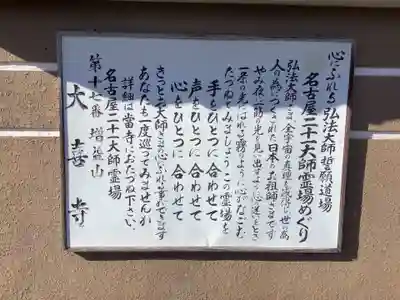 心にふれる弘法大師誓願道場
名古屋二十一大師霊場めぐり
弘法大師さまは、全宇宙の真理を
人の為につくされた日本のお祖師さまです
やみ夜に一筋の光を見い出すよう
一条の光にはげまされるよう
たづねてみましょうこの霊場を
手をひとつに合わせて
声をひとつに合わせて
心をひとつに合わせて
きっとお大師さまの心にふれる事ができます
あなたも一度巡ってみませんか
詳細は當寺におたづね下さい、
名古屋二十一大師霊場
第十七番 増益山
大喜寺